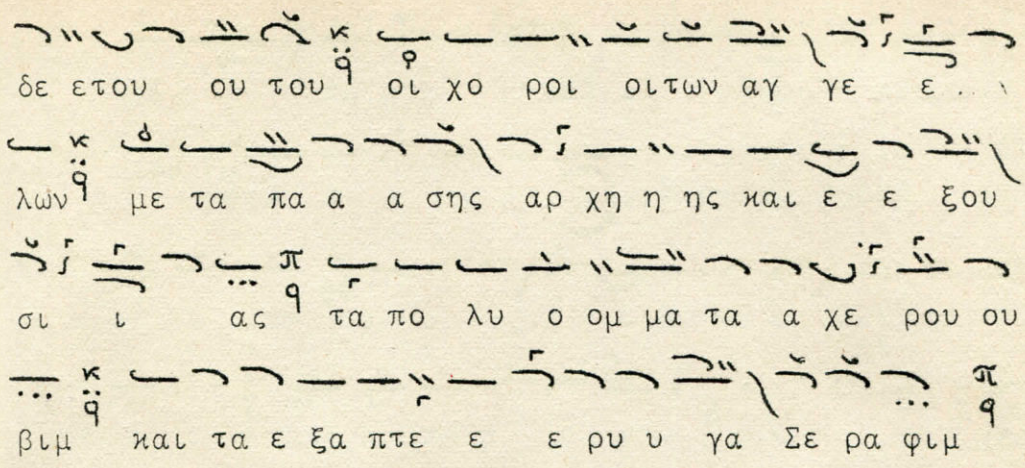 δε ετου ου του οι χο ροι οιτων αγ γε ε . . .
λων με τα πα α α σης αρ χη η ης και ε ε ξου
σι ι ας τα πο λυ ο ομ μα τα α χε ρου ου
βιμ και τα ε ξα πτε ε ε ρυ υ γα Σε ρα φιμ